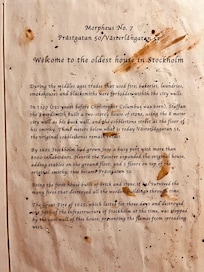 Morpheus No. 7
Prästgatan 50/Västerlånggatan 51
Welcome to the oldest house in Stockholm
During the middle ages trades that used fire, bakeries, laundries,
smokehouses and blacksmiths were forbidden within the city walls.
In 1299 (193 years before Christopher Columbus was born), Staffan
the blacksmith built a two-storey house of stone, using the 8 meter
city wall as his back wall, and the cobblestone street as the floor of
his smithy. Three meters below what is today Västerlånggatan 51,
the original cobblestones remain.
By 1621 Stockholm had grown into a busy port with more than
8000 inhabitants. Henrik the Painter expanded the original house,
adding
stable on the ground floor, and 3 floors on top of the original
smithy; thus became Prästgatan 50.
Being the first house built of brick and stone it has survived the
many fires that destroyed all the wooden buildings through time.
The Great Fire of 1625, which lasted for three days and destroyed
most of the infrastructure of Stockholm at the time, was stopped
by the stone wall of this house, preventing the flames from spreading
west.